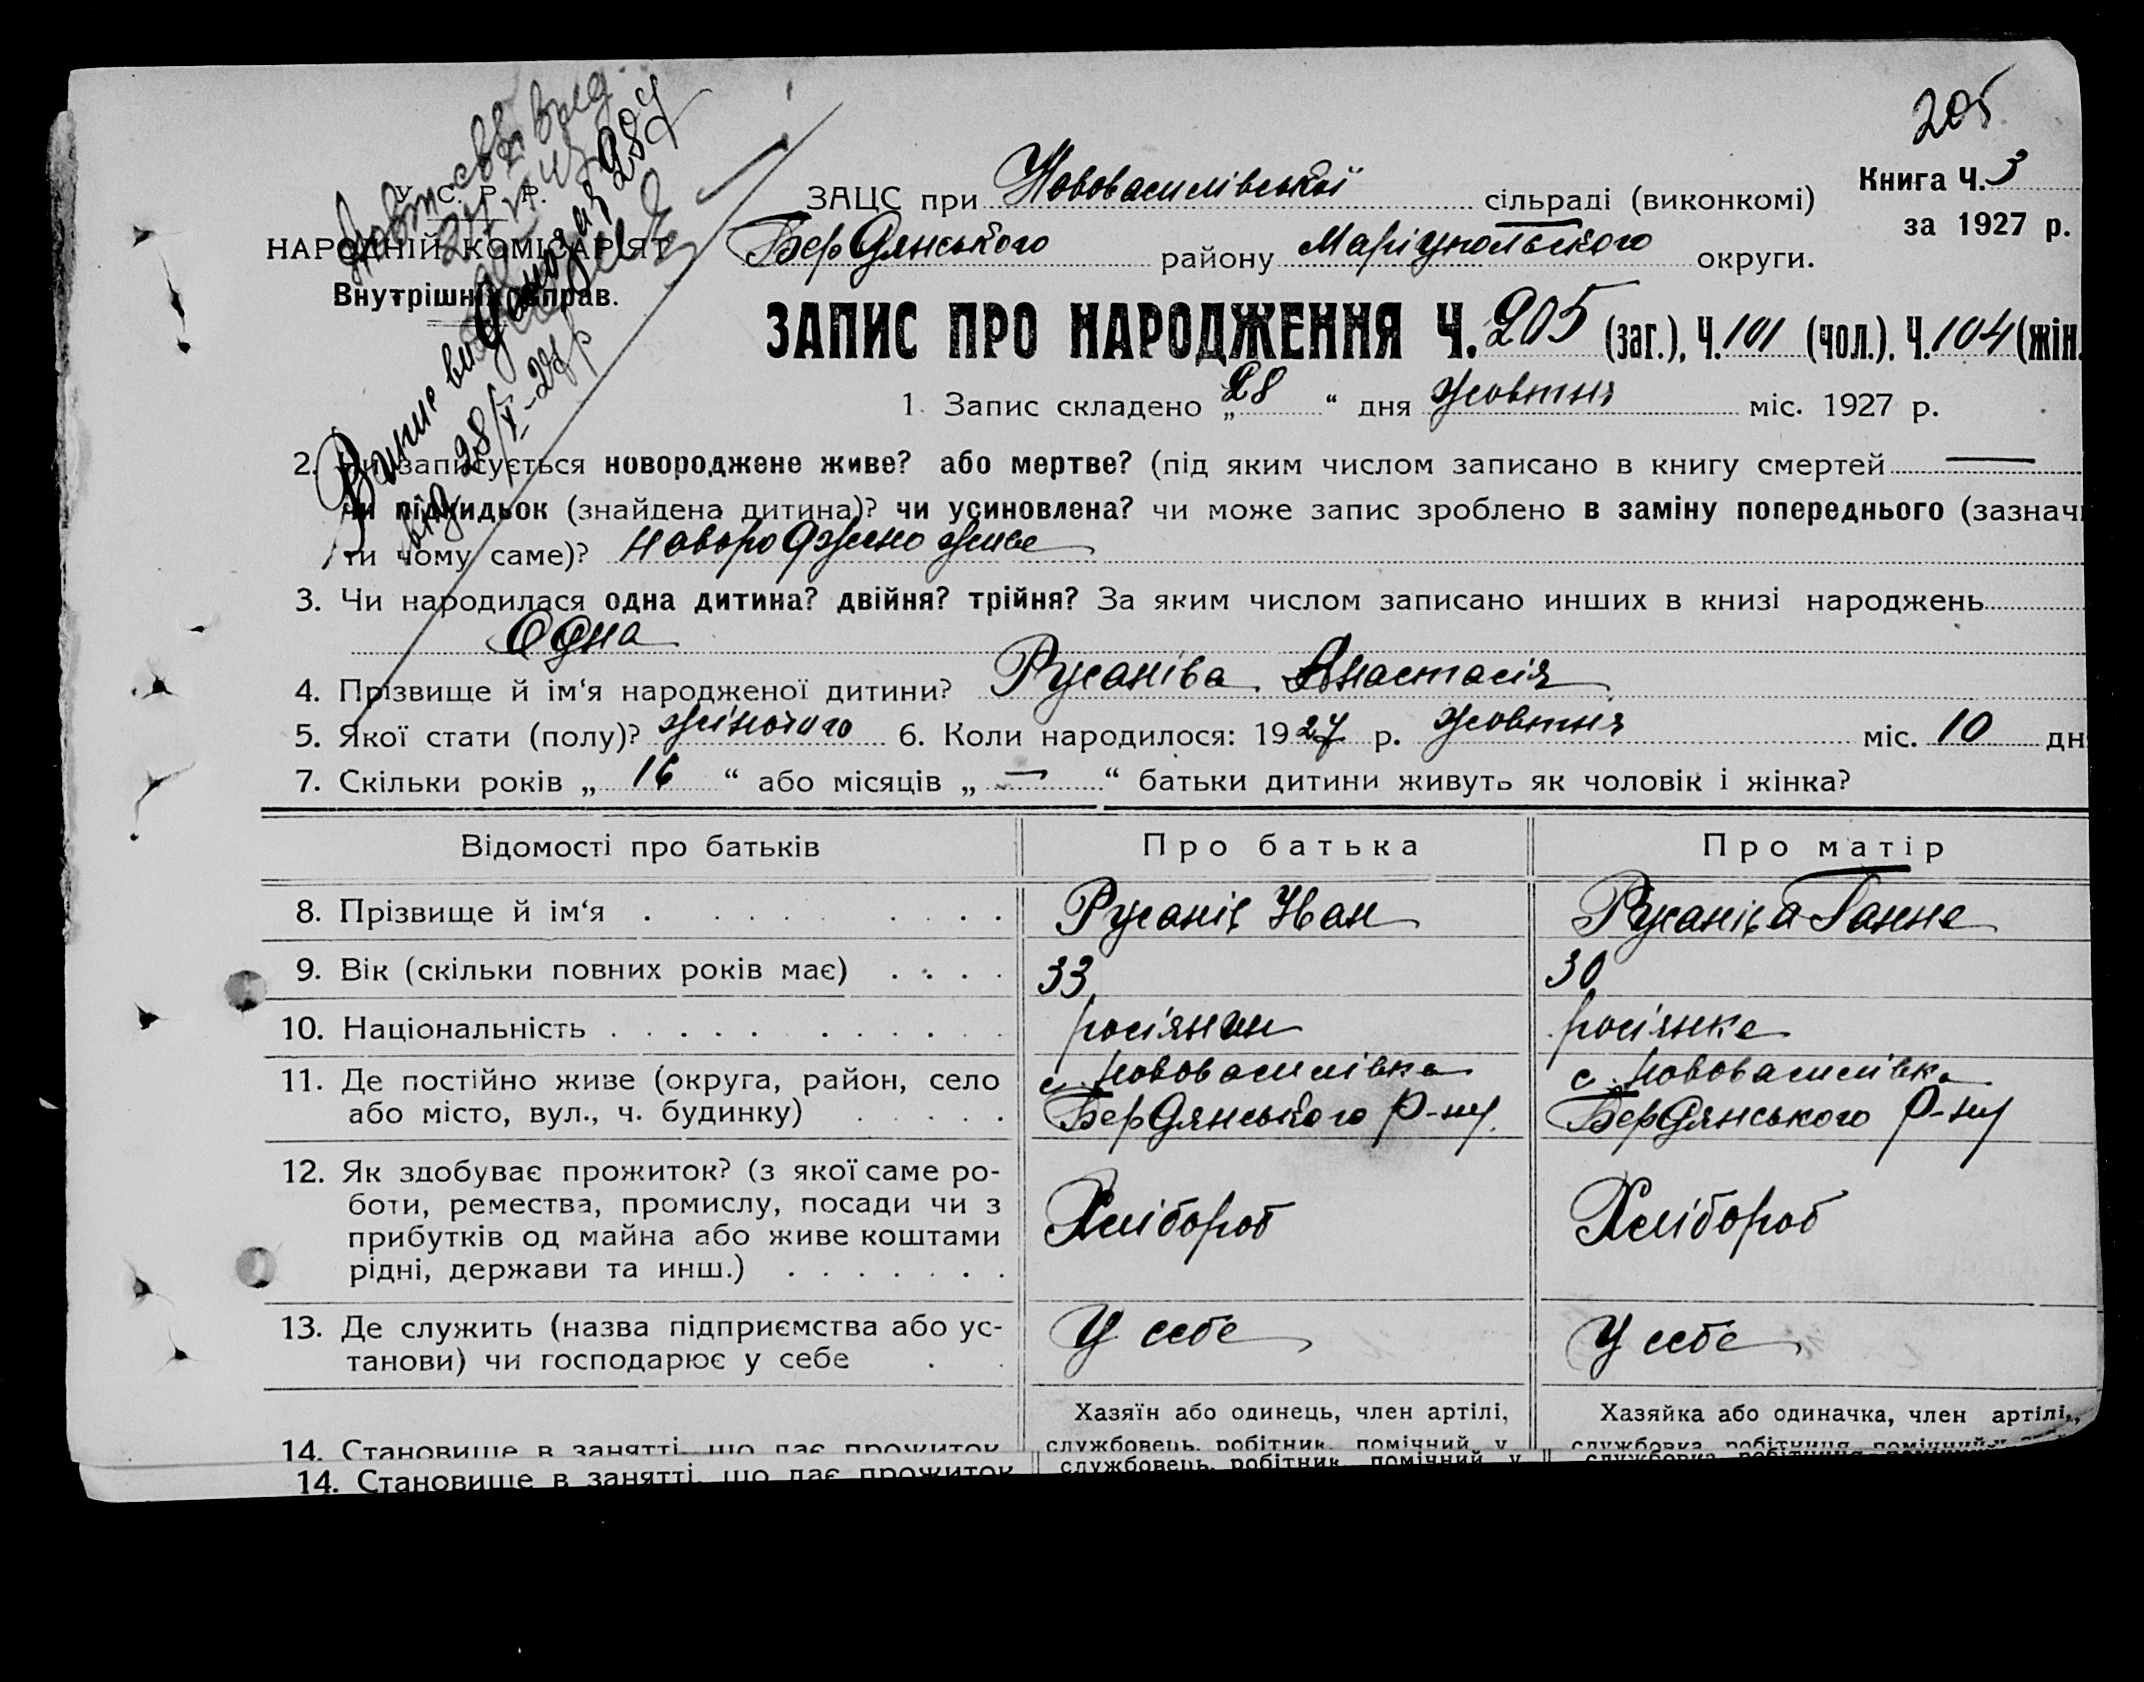 205
У. С. Р. Р.
НАРОДНІЙ КОМІСАРІЯТ
Внутрішніх Справ.
Випис видано за 284
від 28/X-27 р
ЗАЦС при Нововасилівської сільраді (виконкомі)
Книга Ч. 3
за 1927 р.
Бердянського району Маріупольського округи.
ЗАПИС ПРО НАРОДЖЕННЯ Ч. 205 (заг.), Ч. 101 (чол.). Ч. 104 (жін.
1. Запис складено „ 28 “ дня жовтня міс. 1927 р.
2. Чи записується новороджене живе? або мертве? (під яким числом записано в книгу смертей —
чи підкидьок (знайдена дитина)? чи усиновлена? чи може запис зроблено в заміну попереднього (зазнач
ти чому саме)? новороджено живе
3. Чи народилася одна дитина? двійня? трійня? За яким числом записано инших в книзі народжень
Одна
4. Прізвище й ім‘я народженої дитини? Русаніва Анастасія
5. Якої стати (полу)? жіночого 6. Коли народилося: 1927 р. жовтня міс. 10 дн
7. Скільки років „ 16 “ або місяців „ — “ батьки дитини живуть як чоловік і жінка?
Відомості про батьків Про батька Про матір
8. Прізвище й ім‘я Русанів Иван Русаніва Ганна
9. Вік (скільки повних років має) 33 30
10. Національність росіянин росіянка
11. Де постійно живе (округа, район, село с. Нововасилівка с. Нововасилівка
або місто, вул., ч. будинку) Бердянського Р-ну Бердянського Р-ну
12. Як здобуває прожиток? (з якої саме ро-
боти, ремества, промислу, посади чи з Хлібороб Хлібороб
прибутків од майна або живе коштами
рідні, держави та инш.)
13. Де служить (назва підприємства або ус- У себе У себе
танови) чи господарює у себе
Хазяїн або одинець, член артілі, Хазяйка або одиначка, член артілі,
14. Становище в занятті, що дає прожиток службовець, робітник, помічний у службовка, робітниця, помічний у
14. Становище в занятті, що дає прожиток службовець, робітник, помічний у